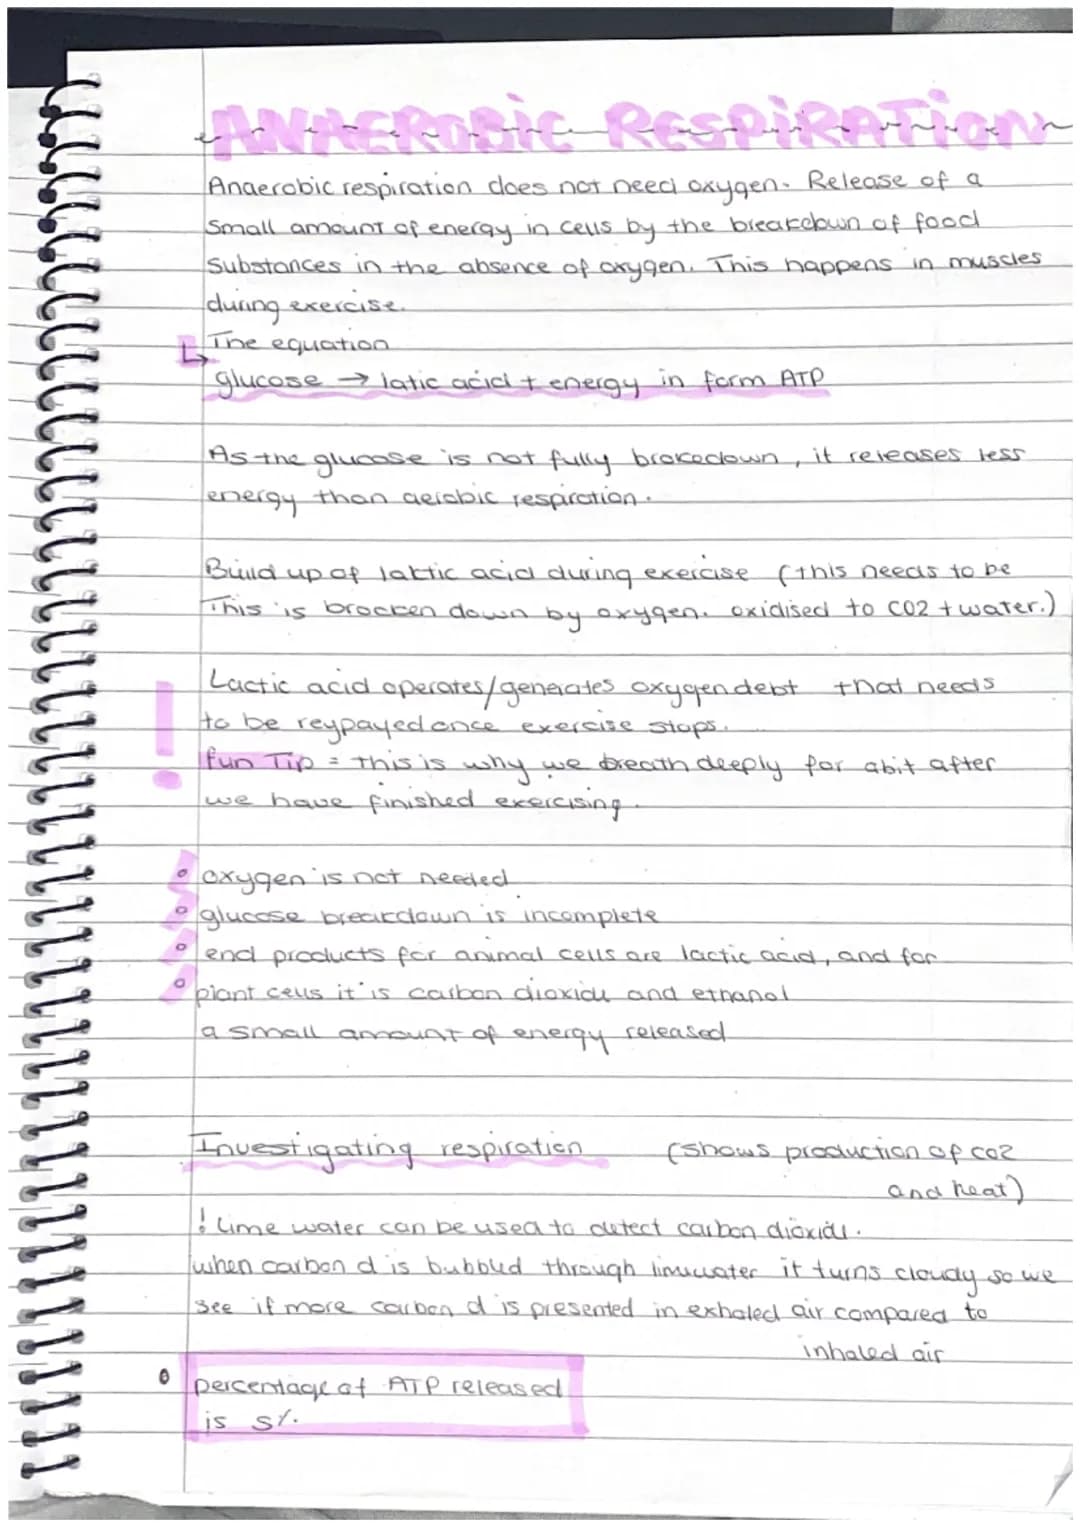 ANAEROBIC RESPIRATION
Anaerobic respiration does not need oxygen. Release of a
small amount of energy in cells by the breakdown of food
substances in the absence of oxygen. This happens in muscles
during exercise.
The equation
glucose → latic acid + energy in form ATP
As the glucose is not fully brokedown, it releases less
energy than aerobic respiration.
Build up of laktic acid during exercise (this needs to be
This is brocken down by oxygen. oxidised to CO2 + water.)
Lactic acid operates/generates oxygen debt that needs
to be reypayed once exercise stops.
fun Tip = this is why we breath deeply for abit after
we have finished exercising.
oxygen is not needed
glucose breakdown is incomplete
end products for animal cells are lactic acid, and for
plant cells it is carbon dioxide and ethanol
a small amount of energy released
Investigating respiration (shows production of co2
and heat)
! Lime water can be used to detect carbon dioxide.
when carbon d is bubbled through limewater it turns cloudy so we
see if more carbon d is presented in exhaled air compared to
inhaled air
percentage of ATP released
is 5%.